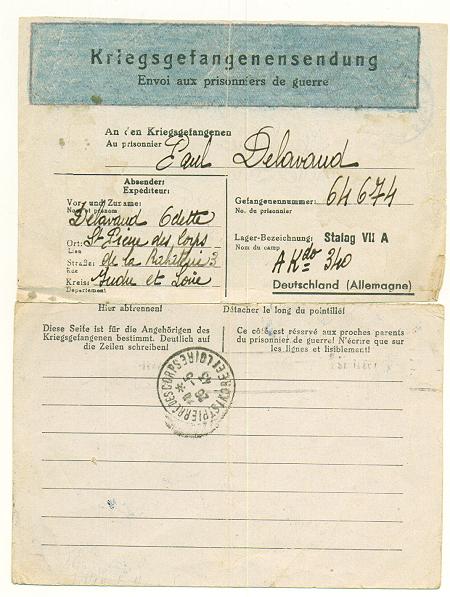 Kriegsgefangenensendung
Envoi aux prisonniers de guerre
An den Kriegsgefangenen
Au prisonnier Paul Delavaud
Absender:
Expéditeur:
Vor- und Zuname:
Nom et prénom
Delavaud Odette
Ort: St Pierre des Corps
Lieu
Straße: de la 3
Rue
Kreis: Indre et Loire
Département
Gefangenennummer: 64674
No. du prisonnier
Lager-Bezeichnung: Stalag VII A
Nom du camp
A Kdo 340
Deutschland (Allemagne)
Hier abtrennen! Détacher le long du pointillé!
Diese Seite ist für die Angehörigen des
Kriegsgefangenen bestimmt. Deutlich auf
die Zeilen schreiben!
Ce côté est réservé aux proches parents
du prisonnier de guerre! N'écrire que sur
les lignes et lisiblement!
ST PIERRE DES CORPS